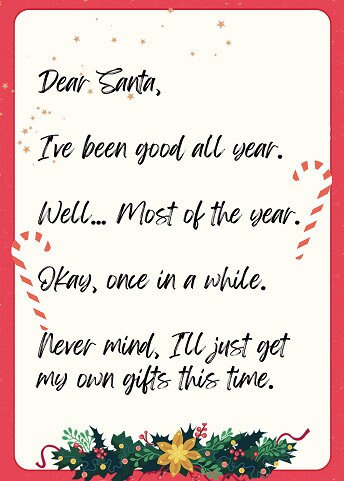 Dear Santa,
I've been good all year.
Well... Most of the year.
Okay, once in a while.
Never mind, I'll just get
my own gifts this time.